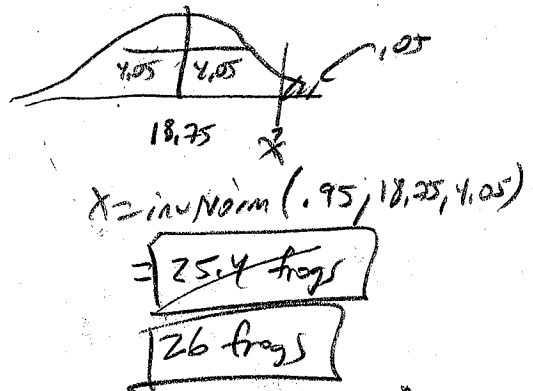 .05
4.05 4.05
18.75 X
X = invNorm (.95, 18.75, 4.05)
= 25.4 frogs
26 frogs